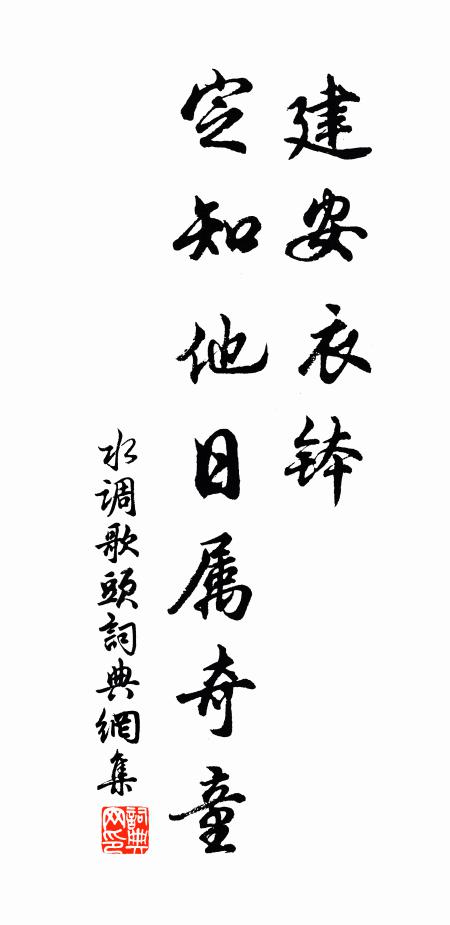 建安衣钵
定知他日属奇童
水调歌頭詞典網集
詞典网印